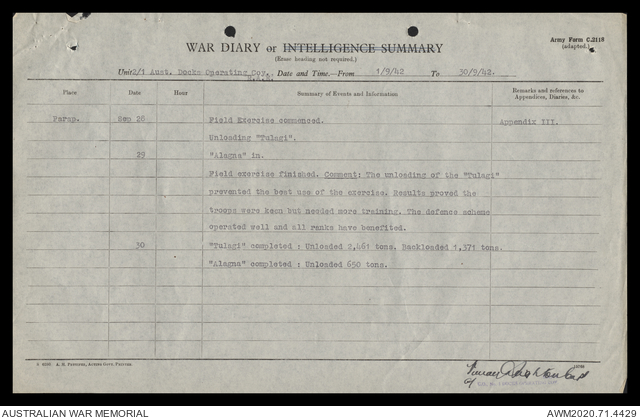 Army Form C.2118
(adapted.)
WAR DIARY or INTELLIGENCE SUMMARY
(Erase heading not required.)
Unit 2/1 Aust. Docks Operating Coy. Date and Time.—From 1/9/42 To 30/9/42.
Place Date Hour Summary of Events and Information Remarks and references to Appendices, Diaries, &c.
Parap. Sep 28 Field Exercise commenced. Appendix III.
Unloading "Tulagi".
29 "Alagna" in.
Field exercise finished. Comment: The unloading of the "Tulagi"
prevented the best use of the exercise. Results proved the
troops were keen but needed more training. The defence scheme
operated well and all ranks have benefited.
30 "Tulagi" completed : Unloaded 2,461 tons. Backloaded 1,371 tons.
"Alagna" completed : Unloaded 650 tons.
AUSTRALIAN WAR MEMORIAL
AWM2020.71.4429